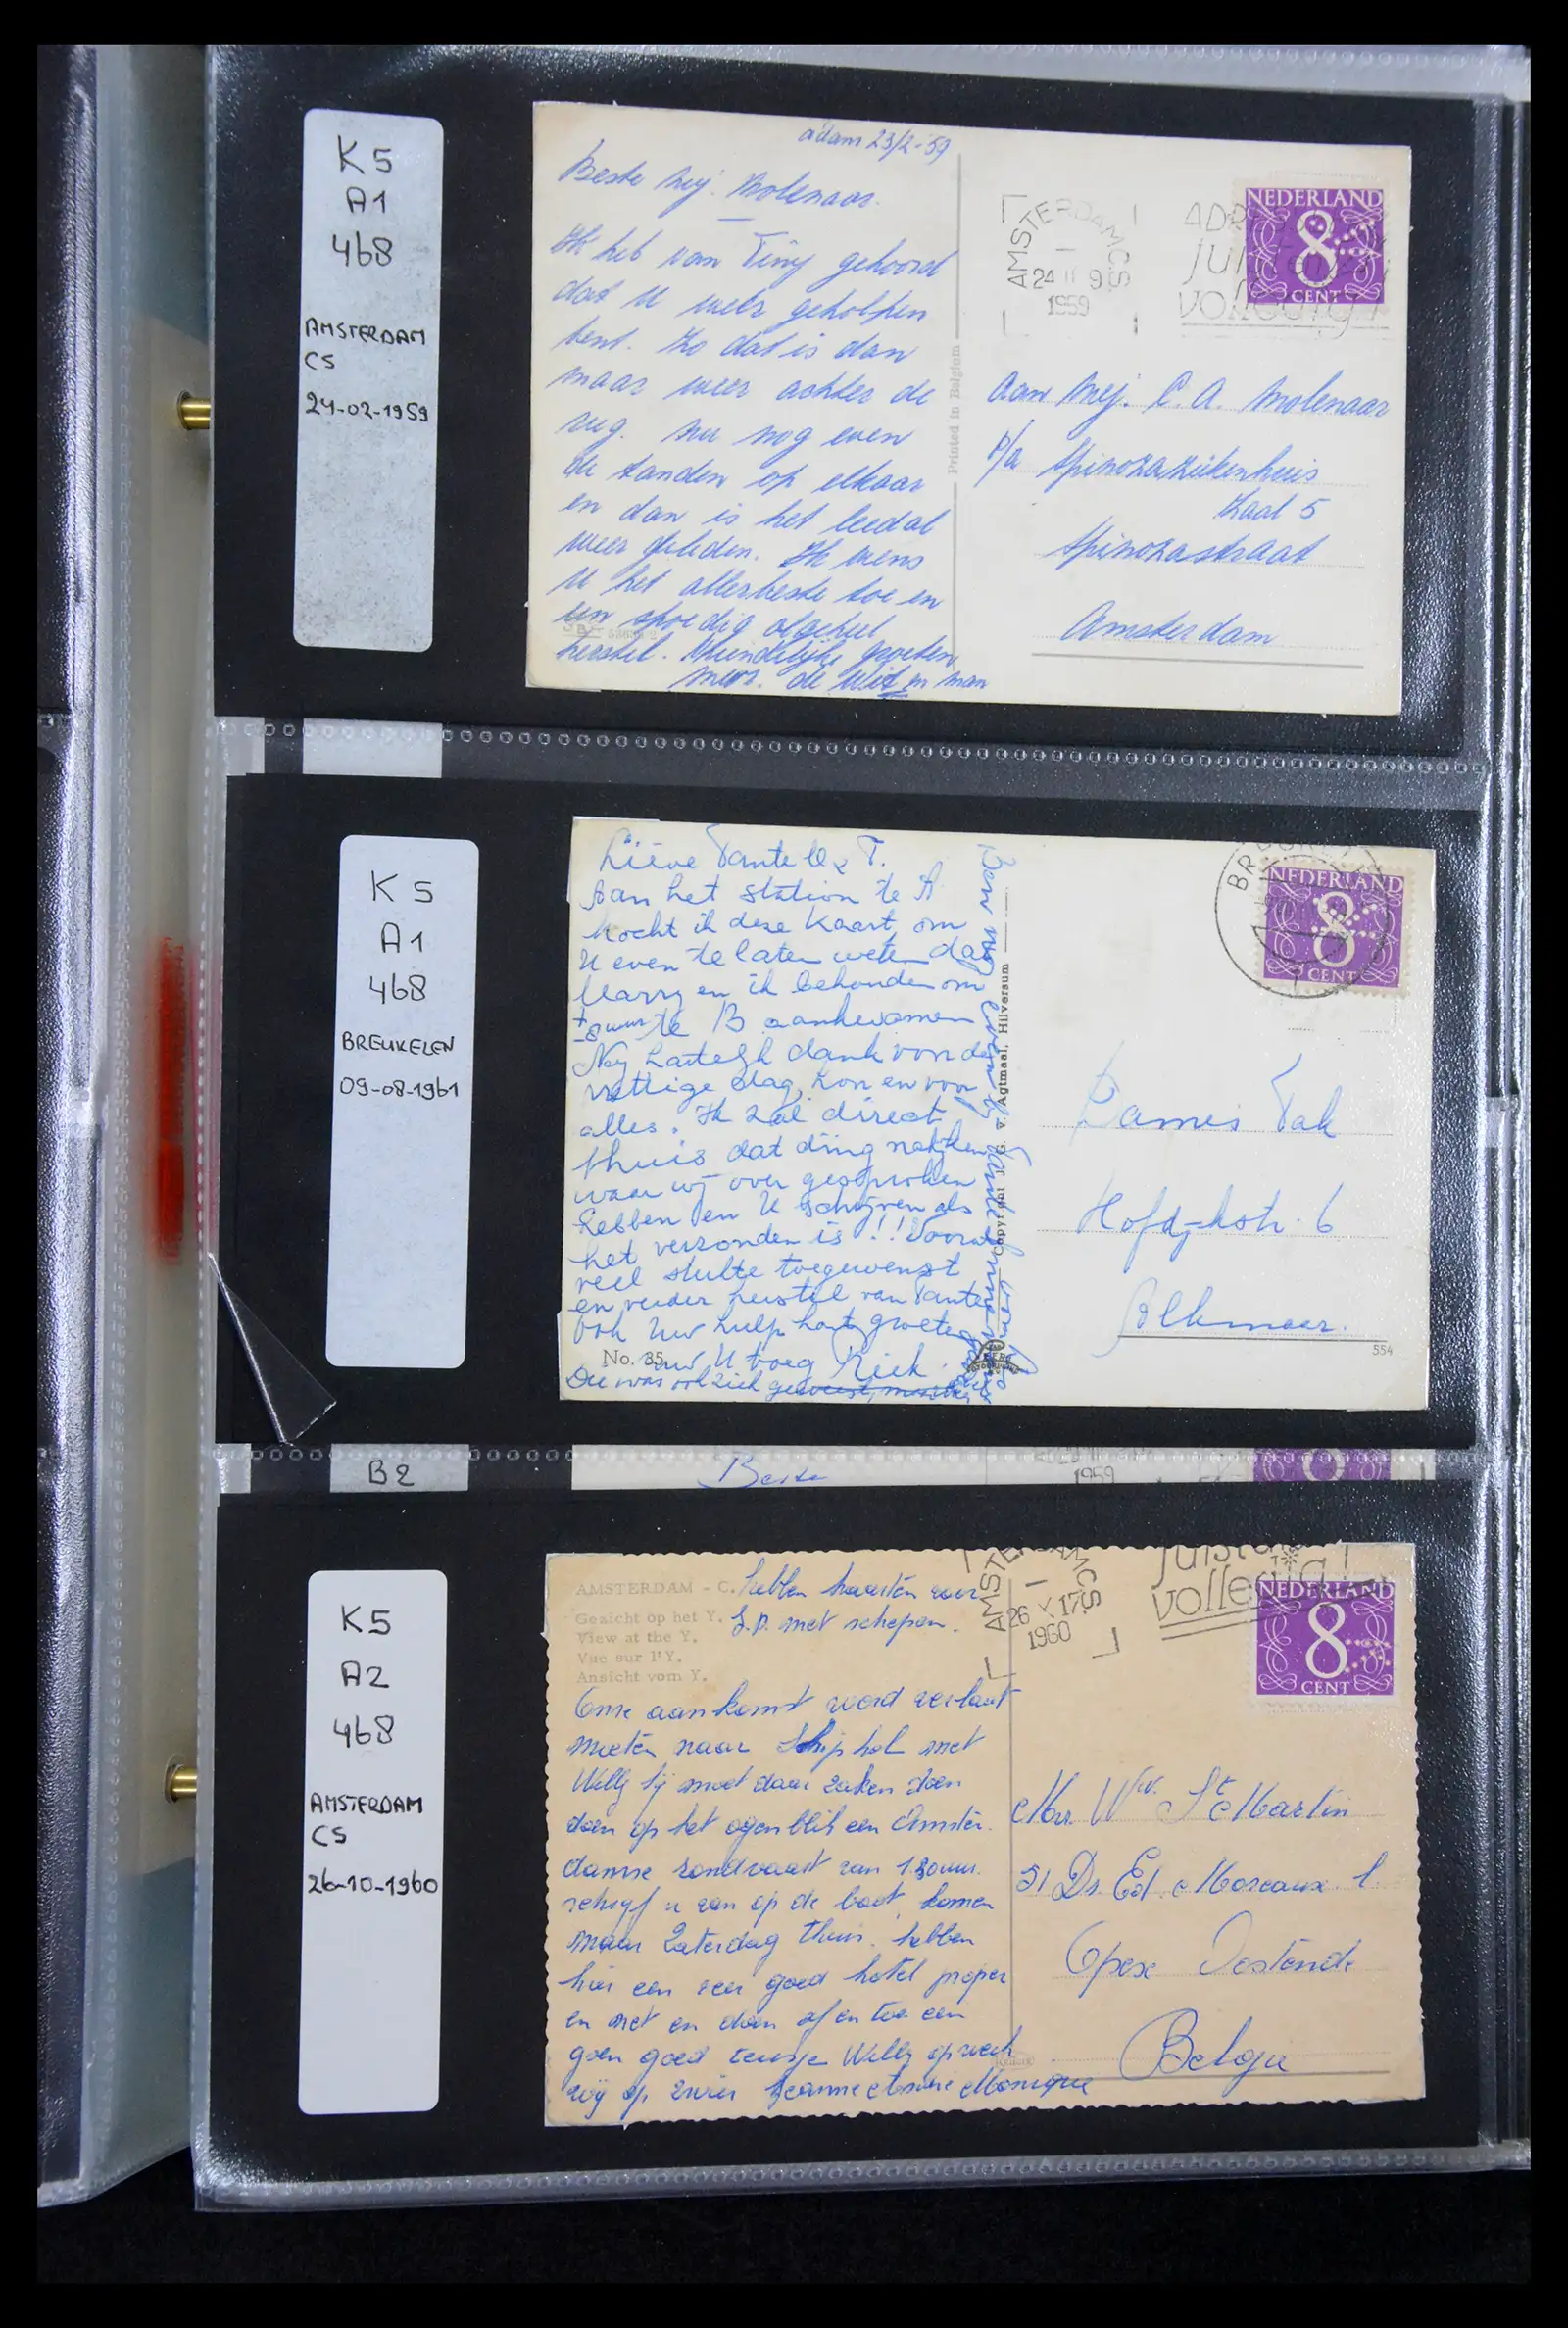 K5
A1
468
AMSTERDAM
CS
24-02-1959
a'dam 23/2-'59
Beste Mej. Molenaar.
Ik heb van Tiny gehoord
dat U weer geholpen
bent. Zo dat is dan
maar weer achter de
rug. Nu nog even
de tanden op elkaar
en dan is het leedal
weer geleden. Ik wens
U het allerbeste toe en
een spoedig algeheel
herstel. Vriendelijke groeten
mevr. de Wit en man
Printed in Belgium
AMSTERDAM C.S.
24 II 9
1959
ADR
juist
volledig
NEDERLAND
8
CENT
Aan Mej. C. A. Molenaar
p/a Spinozaziekenhuis
Zaal 5
Spinozastraat
Amsterdam
K5
A1
468
BREUKELEN
09-08-1961
Lieve Tante & T.
Aan het station te A
kocht ik deze kaart, om
U even te laten weten dat
Marry en ik behouden om
± 8 uur te B aankwamen
Nog hartelijk dank voor de
prettige dag, zon en voor
alles. Ik zal direct
thuis dat ding
waar wij over gesproken
hebben en U schrijven als
het verzonden is!! Vooral
veel sterkte toegewenst
en verder herstel van Tante
ook Uw hulp hart. groeten
No. 35 U toeg Riek.
Die was ook ziek geweest,
Copyright J. G. v. Agtmaal, Hilversum
BREUKELEN
NEDERLAND
8
CENT
Dames Tak
Hofdijkstr. 6
Alkmaar.
554
B2
Beste
1959
K5
A2
468
AMSTERDAM
CS
26-10-1960
AMSTERDAM - C. hebben kaarten voor
Gezicht op het Y. J.P. met schepen.
View at the Y.
Vue sur l'Y.
Ansicht vom Y.
Onze aankomst word verlaat
moeten naar Schiphol met
Willy hij moet daar zaken doen
doen op het ogenblik een Amster-
damse rondvaart van 1.30 uur.
schrijf u van op de boot, komen
maar Zaterdag thuis. hebben
hier een zeer goed hotel proper
en net en doen af en toe een
goed Willy op werk
wij op zwier Jeanne Monique
AMSTERDAM C.S.
26 X 17
1960
juist
volledig
NEDERLAND
8
CENT
Mvr Wwe. St Martin
51 Dr. Ed. Moreaux l.
Opex Oostende
Belgie